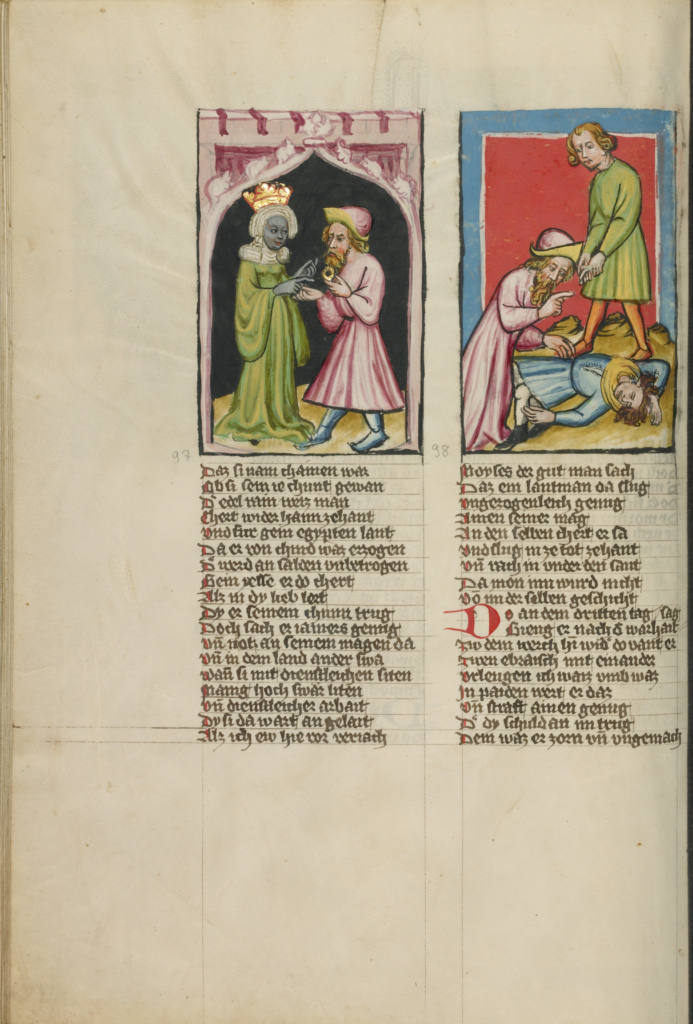 97
Daz si nam chainen war
Ob si sein ie chunt gewan
D edel rain weiz man
Chert wider haim zehant
Vnd fůr gein egypten lant
Da er von chind waz erzogen
D werd an sælden vnbetrogen
Gein yesse er do chert
Alz in dy lieb lert
Dy er seinem chunn trug
Doch sach er iamers genug
Vn not an seinem magen da
Vn in dem land ander swa
Wan si mit dienstleichen siten
Manig hoch swær liten
Vn dienstleicher arbait
Dy si da wart an gelait
Alz ich ew hie vor veriach
98
Moyses der gut man sach
Daz ein lantman da slug
Vngezogenleich genug
Ainen seiner mag
An den selben chert er sa
Vnd slug in ze tot zehant
Vn varch in vnder den sant
Da mon inn wurd nicht
Vo im der selben geschicht
Do an dem dritten tag sag
Gieng er nach d warhait
Zw dem werch hi wid do vant er
Zwen ebræisch mit einander
Vrleugen ich waiz vmb waz
In paiden wert er daz
Vn straft ainen genug
D dy schuld an im trug
Dem waz er zorn vn vngemach